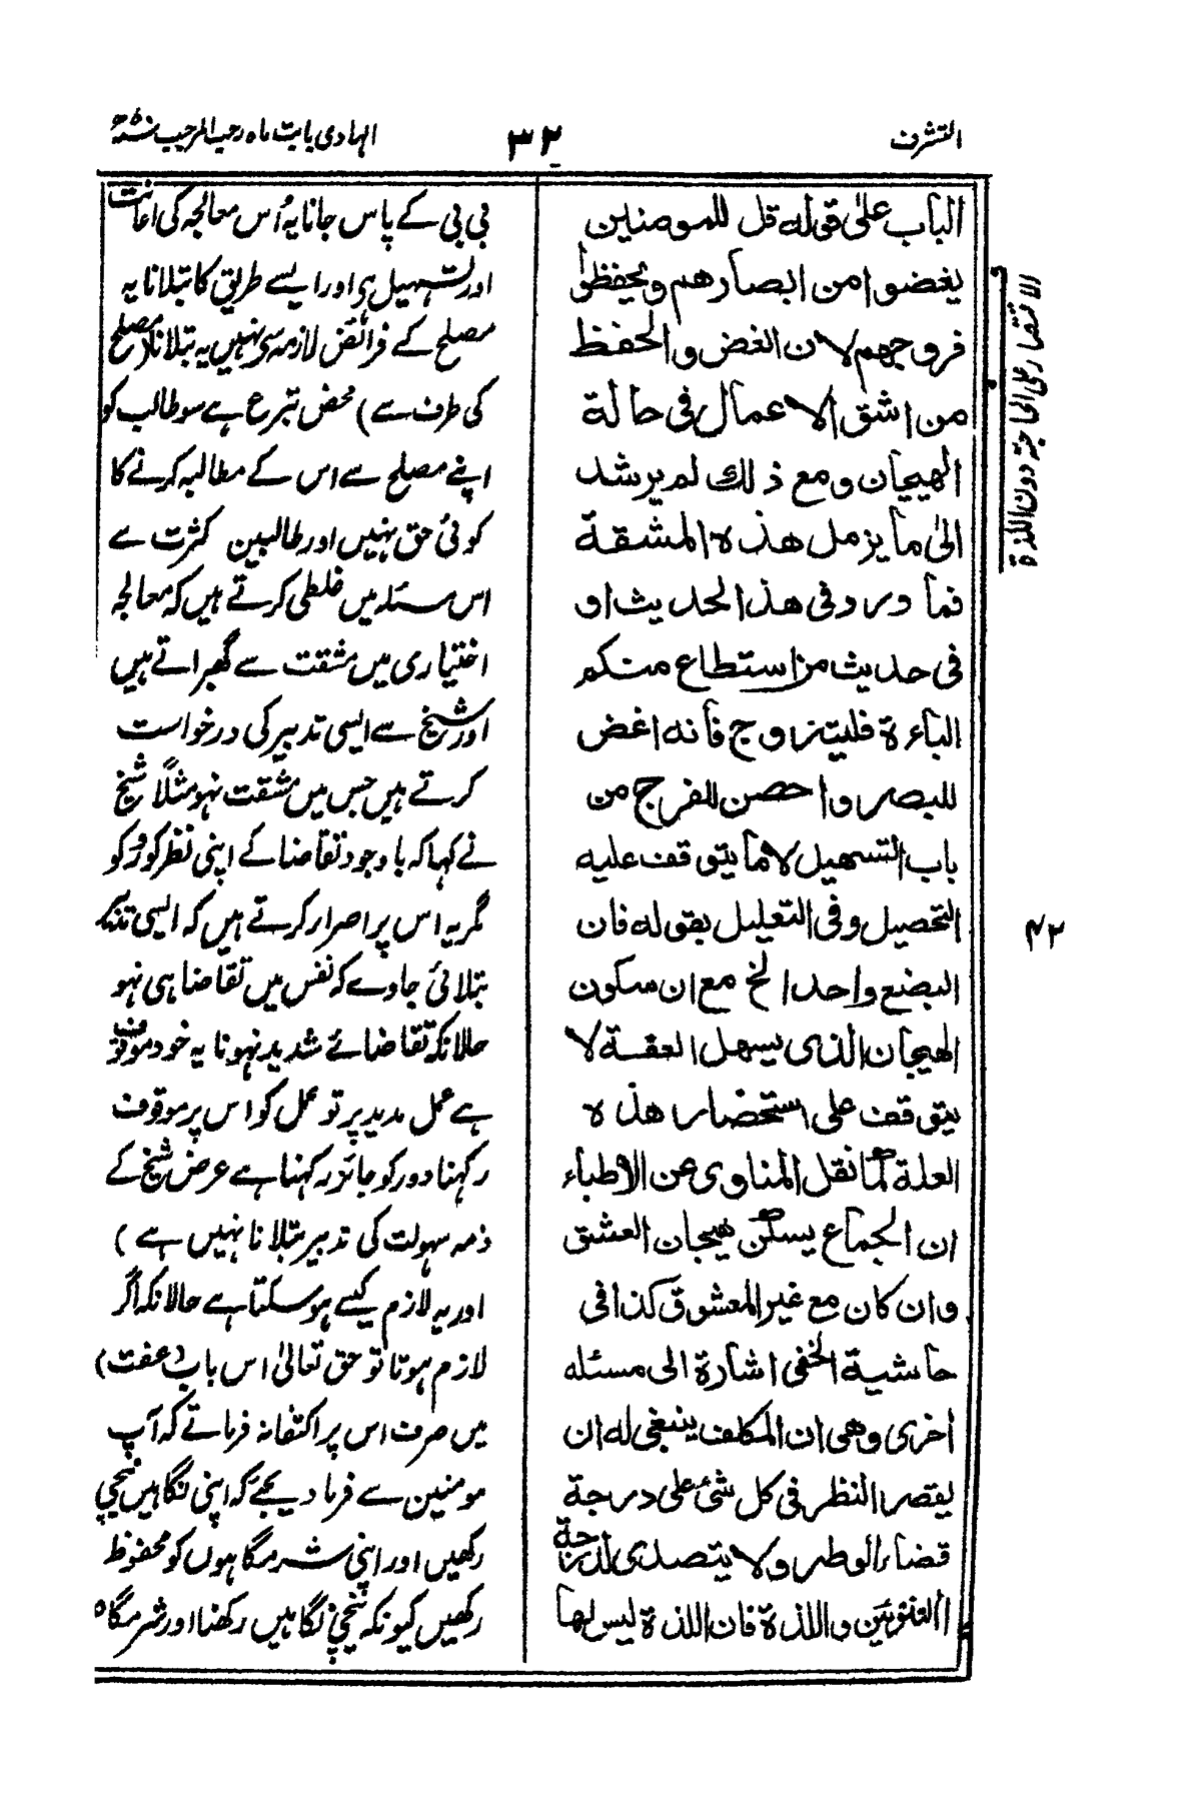 التشرف
۳۲
الہادی بابت ماہ رجب المرجب
الباب علىٰ قوله قل للمومنين
يغضوا من ابصارهم ويحفظوا
فروجهم لان الغض والحفظ
من اشق الاعمال فى حالة
الهيجان ومع ذلك لم يرشد
الىٰ ما يزمل هذه المشقة
فما ورد فى هذا الحديث او
فى حديث من استطاع منكم
الباءة فليتزوج فانه اغض
للبصر واحصن للفرج من
باب التسهيل لا ما يتوقف عليه
التحصيل وفى التعليل بقوله فان
البضع واحد الخ مع ان سكون
الهيجان الذى يسهل العفة لا
يتوقف على استحضار هذه
العلة لما نقل المناوى عن الاطباء
ان الجماع يسكن هيجان العشق
وان كان مع غير المعشوق كذا فى
حاشية الحفنى اشارة الى مسئله
اخرى وهى ان المكلف ينبغى له ان
يقصر النظر فى كل شئ على درجة
قضاء الوطر ولا يتصدى لدرجة
التفنن واللذة فان اللذة ليس لها
بی بی کے پاس جانا یہ اُس معالجہ کی اعانت
اور تسہیل ہی اور ایسے طریق کا بتلانا یہ
مصلح کے فرائض لازمہ سی نہیں یہ بتلانا (مصلح
کی طرف سے) محض تبرع ہے سو طالب کو
اپنے مصلح سے اس کے مطالبہ کرنے کا
کوئی حق نہیں اور طالبین کثرت سے
اس مسئلہ میں غلطی کرتے ہیں کہ معالجہ
اختیاری میں مشقت سے گھبراتے ہیں
اور شیخ سے ایسی تدبیر کی درخواست
کرتے ہیں جس میں مشقت نہو مثلاً شیخ
نے کہا کہ باوجود تقاضا کے اپنی نظر کو روکو
مگر یہ اس پر اصرار کرتے ہیں کہ ایسی
بتلائی جاوے کہ نفس میں تقاضا ہی نہو
حالانکہ تقاضائے شدید نہونا یہ خود موقوف
ہے عمل مدید پر تو عمل کو اس پر موقوف
رکہنا دور کو جائز کہنا ہے عرض شیخ کے
ذمہ سہولت کی تدبیر بتلانا نہیں ہے)
اور یہ لازم کیسے ہوسکتا ہے حالانکہ اگر
لازم ہوتا تو حق تعالیٰ اس باب (عفت)
میں صرف اس پر اکتفا نہ فرماتے کہ آپ
مومنین سے فرما دیجئے کہ اپنی نگاہیں نیچی
رکھیں اور اپنی شرمگاہوں کو محفوظ
رکھیں کیونکہ نیچی نگاہیں رکھنا اور شرمگاہ
الاقتصار على الحاجة دون اللذة
۴۲